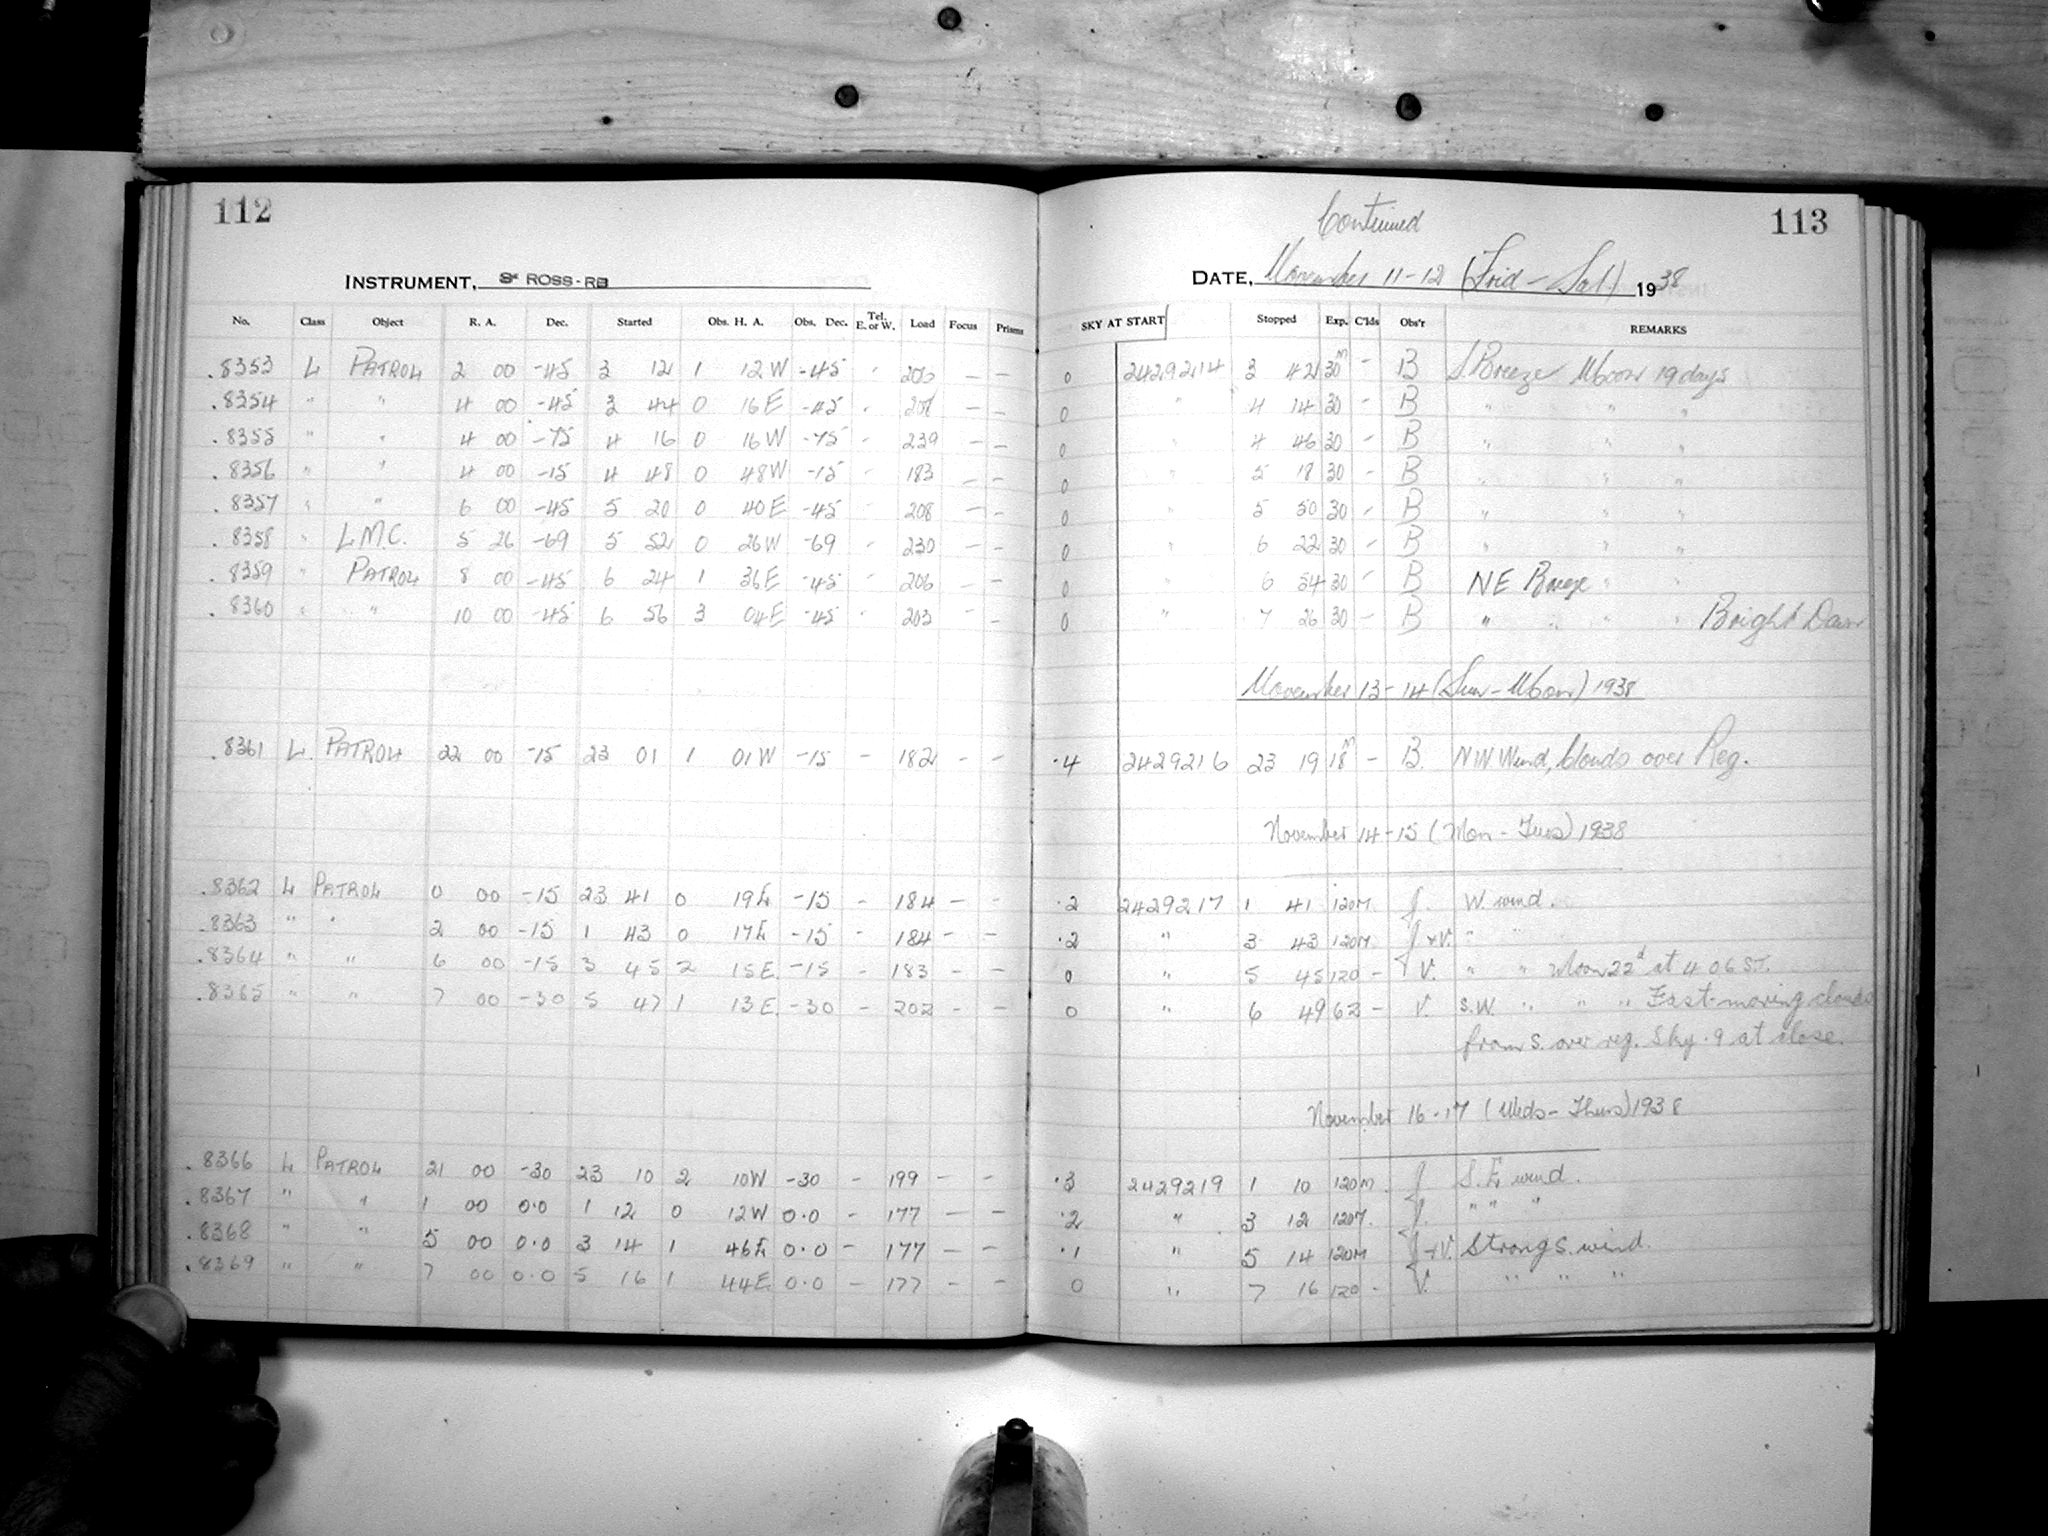 112
INSTRUMENT, ROSS-RB
No. Class Object R. A. Dec. Started Obs. H. A. Obs. Dec. Tel. E. or W. Load Focus Prisms
.8353 L PATROL 2 00 -45 3 12 1 12W -45 - — —
.8354 " " 4 00 -45 3 44 0 16E -45 - — —
.8355 " " 4 00 -75 4 16 0 16W -75 - 239 — —
.8356 " " 4 00 -15 4 48 0 48W -15 - 183 — —
.8357 " " 6 00 -45 5 20 0 40E -45 - 208 — —
.8358 " L.M.C. 5 26 -69 5 52 0 26W -69 - 230 — —
.8359 " PATROL 8 00 -45 6 24 1 36E -45 - 206 — —
.8360 " " 10 00 -45 6 56 3 04E -45 - 203 — —
.8361 L. PATROL 22 00 -15 23 01 1 01W -15 - 182 - -
.8362 L PATROL 0 00 -15 23 41 0 19E -15 - 184 - -
.8363 " " 2 00 -15 1 43 0 17E -15 - 184 - -
.8364 " " 6 00 -15 3 45 2 15E -15 - 183 - -
.8365 " " 7 00 -30 5 47 1 13E -30 - 202 - -
.8366 L PATROL 21 00 -30 23 10 2 10W -30 - 199 - -
.8367 " " 1 00 0.0 1 12 0 12W 0.0 - 177 - -
.8368 " " 5 00 0.0 3 14 1 46E 0.0 - 177 - -
.8369 " " 7 00 0.0 5 16 1 44E 0.0 - 177 - -
Continued
113
DATE, November 11-12 (Frid - Sat) 1938
SKY AT START Stopped Exp. C'lds Obs'r REMARKS
0 2429214 3 42 30m - B S. Breeze Moon 19 days
0 " 4 14 30 - B " " "
0 " 4 46 30 - B " " "
0 " 5 18 30 - B " " "
0 " 5 50 30 - B " " "
0 " 6 22 30 - B " " "
0 " 6 54 30 - B NE Breeze " "
0 " 7 26 30 - B " " " " Bright Dawn
November 13-14 (Sun - Mon) 1938
.4 2429216 23 19 18m - B. NW Wind, Clouds over Reg.
November 14-15 (Mon - Tues) 1938
.2 2429217 1 41 120M. J. W. wind.
.2 " 3 43 120M. J+V. " "
0 " 5 45 120 - V. " " Moon 22d at 4 06 ST.
0 " 6 49 62 - V. S.W. " " " Fast-moving clouds
from S. over reg. Sky .9 at close.
November 16-17 (Weds - Thurs) 1938
.3 2429219 1 10 120M. J. S. E. wind.
.2 " 3 12 120M. J. " " "
.1 " 5 14 120M J+V. Strong S. wind.
0 " 7 16 120 - V. " " "